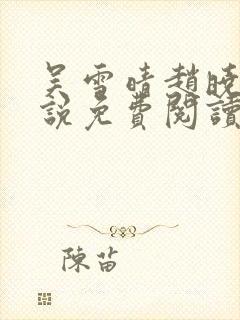 吴雪晴趙曉
說免費閱讀
陳苗